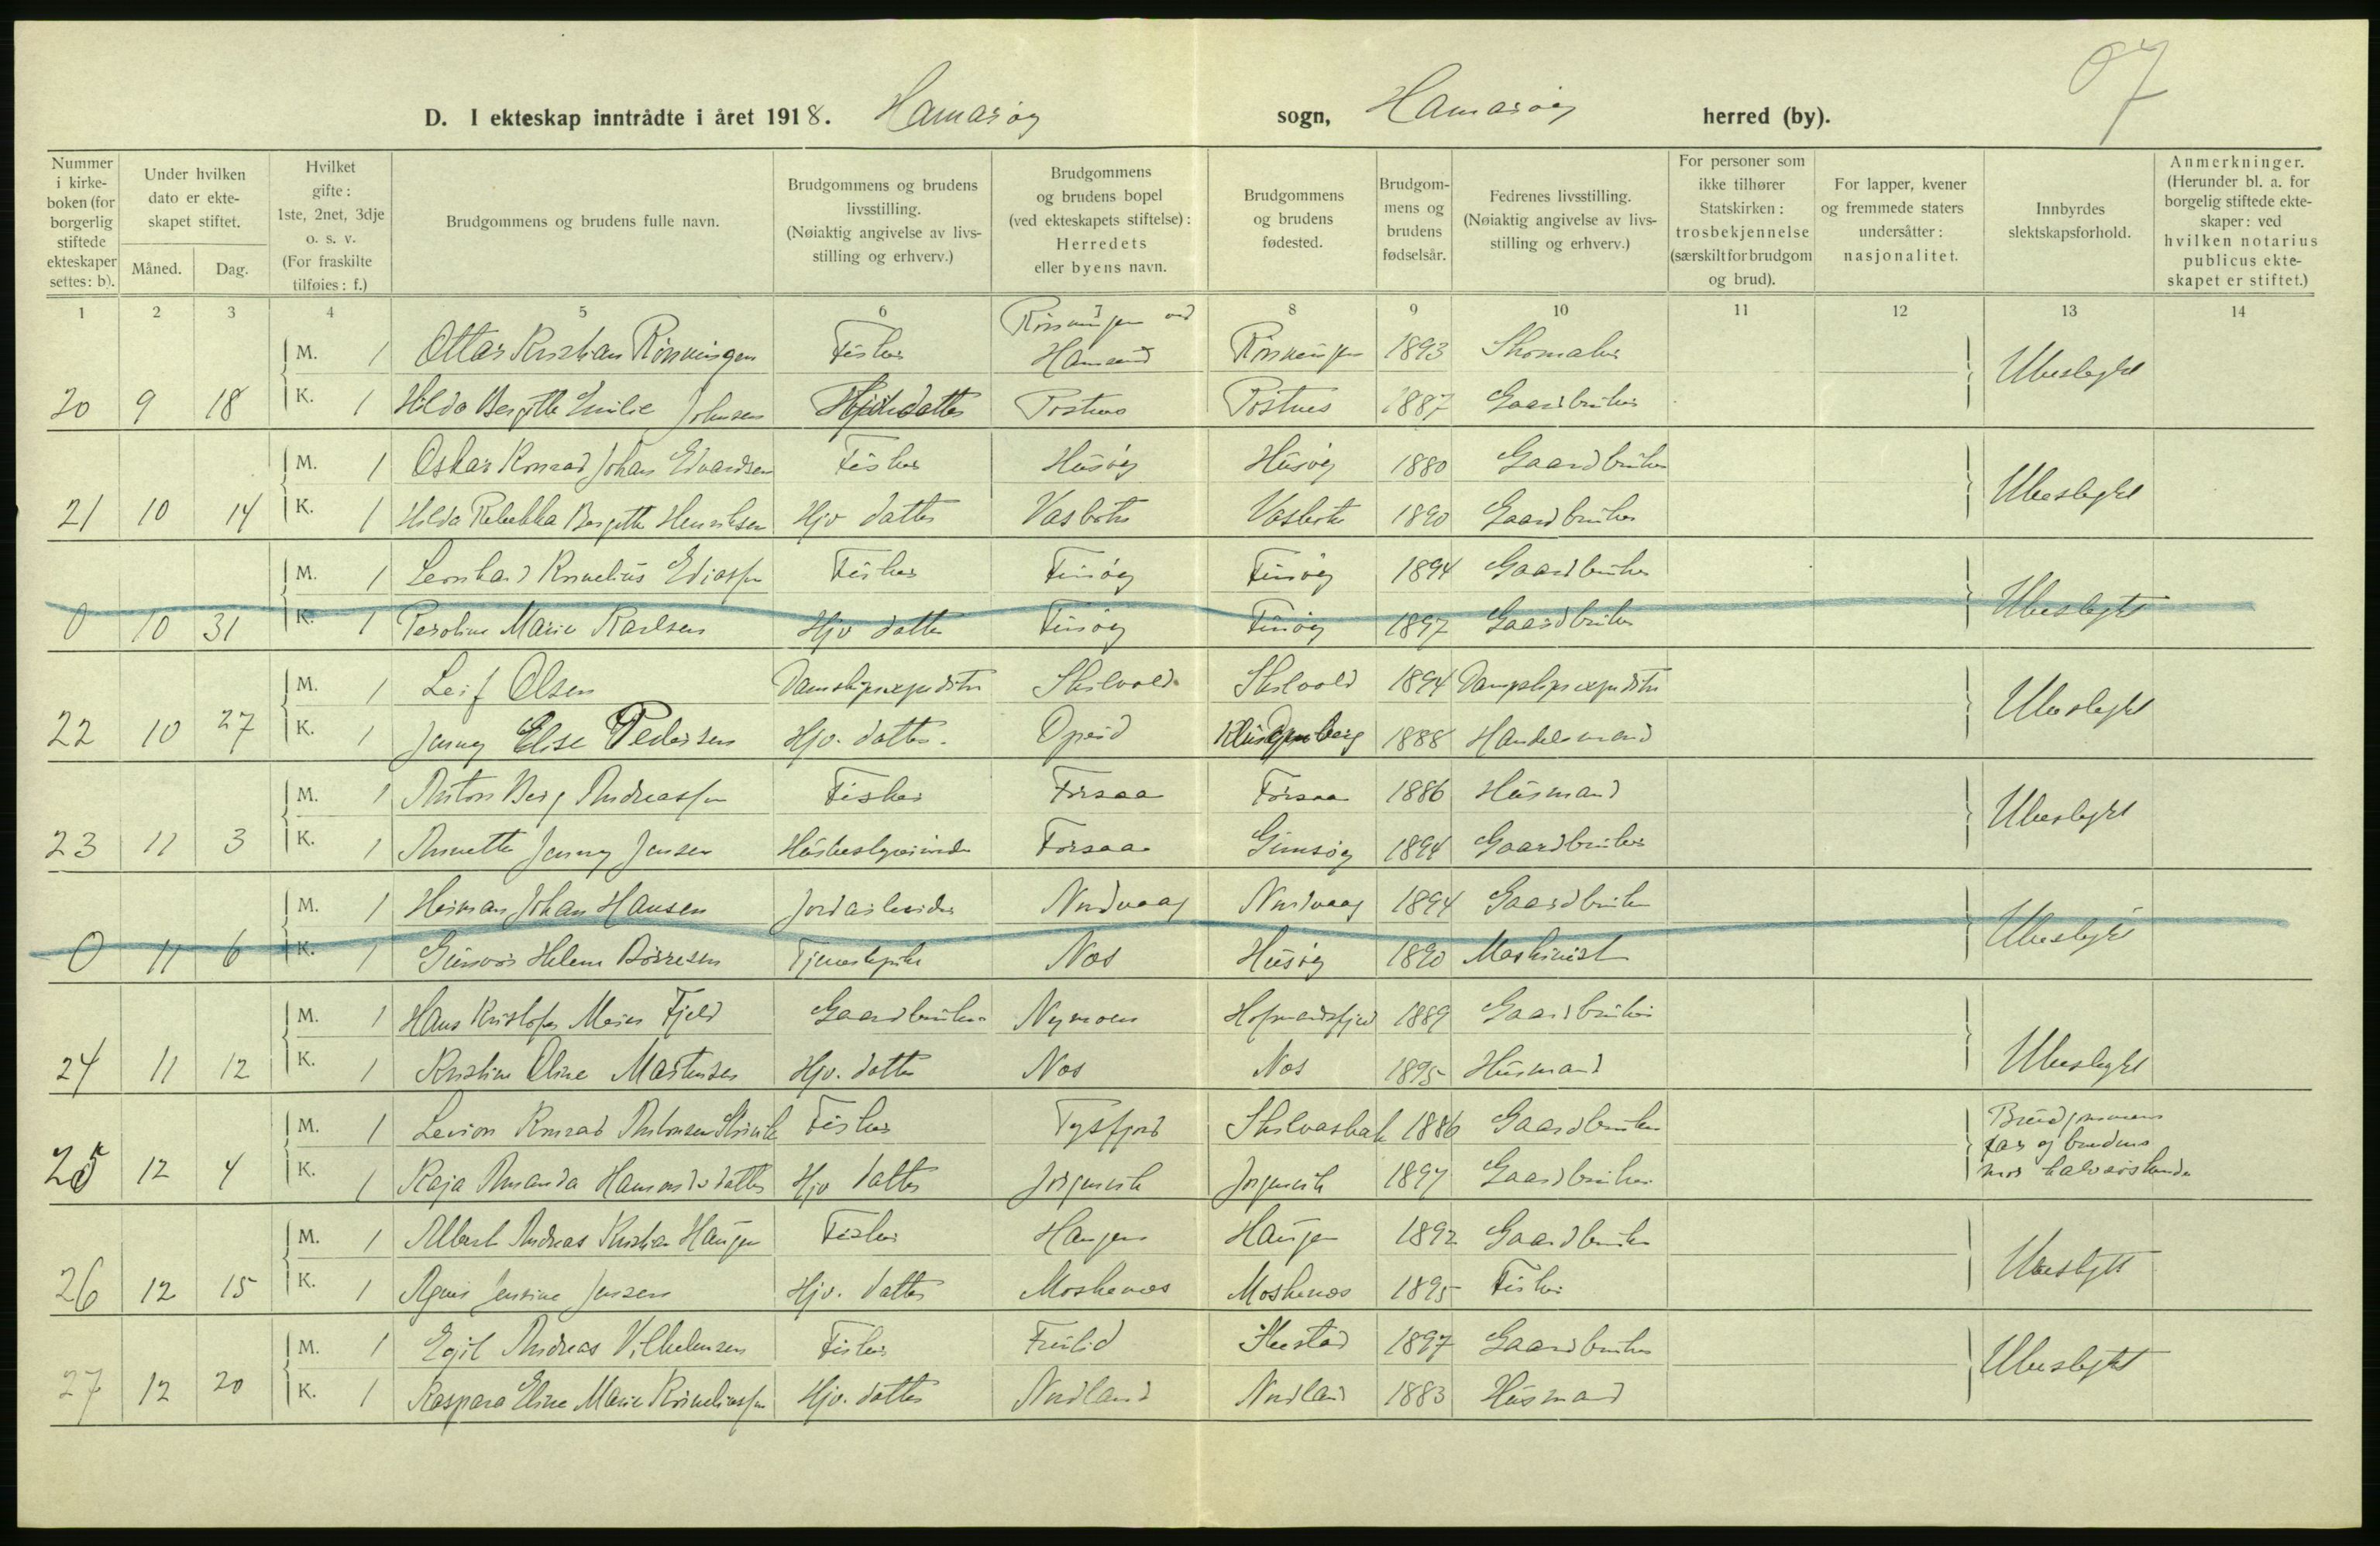 07
D. I ekteskap inntrådte i året 1918. Hamarøy sogn, Hamarøy herred (by).
Nummer i kirke-boken (for borgerlig stiftede ekteskaper settes: b).
Under hvilken dato er ekte-skapet stiftet.
Måned. Dag.
Hvilket gifte: 1ste, 2net, 3dje o. s. v. (For fraskilte tilføies: f.)
Brudgommens og brudens fulle navn.
Brudgommens og brudens livsstilling. (Nøiaktig angivelse av livs-stilling og erhverv.)
Brudgommens og brudens bopel (ved ekteskapets stiftelse): Herredets eller byens navn.
Brudgommens og brudens fødested.
Brudgom-mens og brudens fødselsår.
Fedrenes livsstilling. (Nøiaktig angivelse av livs-stilling og erhverv.)
For personer som ikke tilhører Statskirken: trosbekjennelse (særskilt for brudgom og brud).
For lapper, kvener og fremmede staters undersåtter: nasjonalitet.
Innbyrdes slektskapsforhold.
Anmerkninger. (Herunder bl. a. for borgelig stiftede ekte-skaper: ved hvilken notarius publicus ekte-skapet er stiftet.)
1 2 3 4 5 6 7 8 9 10 11 12 13 14
M. 1 Ottar Kristian Rønningen Fisker Rønningen ved Hamsund Rønningen 1893 Skomaker Ubeslegtet
20 9 18 K. 1 Hilda Bergitte Emilie Johnsen Hjv datter Postnes Postnes 1887 Gaardbruker
M. 1 Oskar Konrad Johan Edvardsen Fisker Husøy Husøy 1880 Gaardbruker Ubeslegtet
21 10 14 K. 1 Hilda Rebekka Bergitte Henriksen Hjv datter Vasbotn Vasbotn 1890 Gaardbruker
M. 1 Leonhard Kornelius Ediassen Fisker Finøy Finøy 1894 Gaardbruker Ubeslegtet
0 10 31 K. 1 Peroline Marie Karlsen Hjv datter Finøy Finøy 1897 Gaardbruker
M. 1 Leif Olsen Damskipsexpeditør Skilvold Skilvold 1894 Dampskipsexpeditør Ubeslegtet
22 10 27 K. 1 Jenny Elise Pedersen Hjv. datter. Opeid 1888 Handelsmand
M. 1 Anton Berg Andreassen Fisker Forsaa Forsaa 1886 Husmand Ubeslegtet
23 11 3 K. 1 Annette Jenny Jensen Husbestyrerinde Forsaa Gimsøy 1894 Gaardbruker
M. 1 Herman Johan Hansen Jordarbeider Nordvaag Nordvaag 1894 Gaardbruker Ubeslegtet
0 11 6 K. 1 Gunvor Helene Børresen Tjenestepike Nes Husøy 1890 Maskinist
M. 1 Hans Kristofer Meier Fjeld Gaardbruker Nymoen 1889 Gaardbruker Ubeslegtet
24 11 12 K. 1 Kristine Oline Martinsen Hjv. datter Nes Nes 1895 Husmand
M. 1 Levion Konrad Antonsen Fisker Tysfjord Skilvasbak 1886 Gaardbruker Brudgommens
far og brudens
mor halvsøskende
25 12 4 K. 1 Kaja Amanda Hamondsdatter Hjv datter Jorgenvik Jorgenvik 1897 Gaardbruker
M. 1 Albert Andreas Kristian Haugen Fisker Haugen Haugen 1892 Gaardbruker Ubeslegtet
26 12 15 K. 1 Agnes Jensine Jensen Hjv. datter Moskenes Moskenes 1895 Fisker
M. 1 Egil Andreas Vilhelmsen Fisker Frulid 1897 Gaardbruker Ubeslegtet
27 12 20 K. 1 Kaspara Eline Marie Korneliussen Hjv. datter Nordland Nordland 1883 Husmand